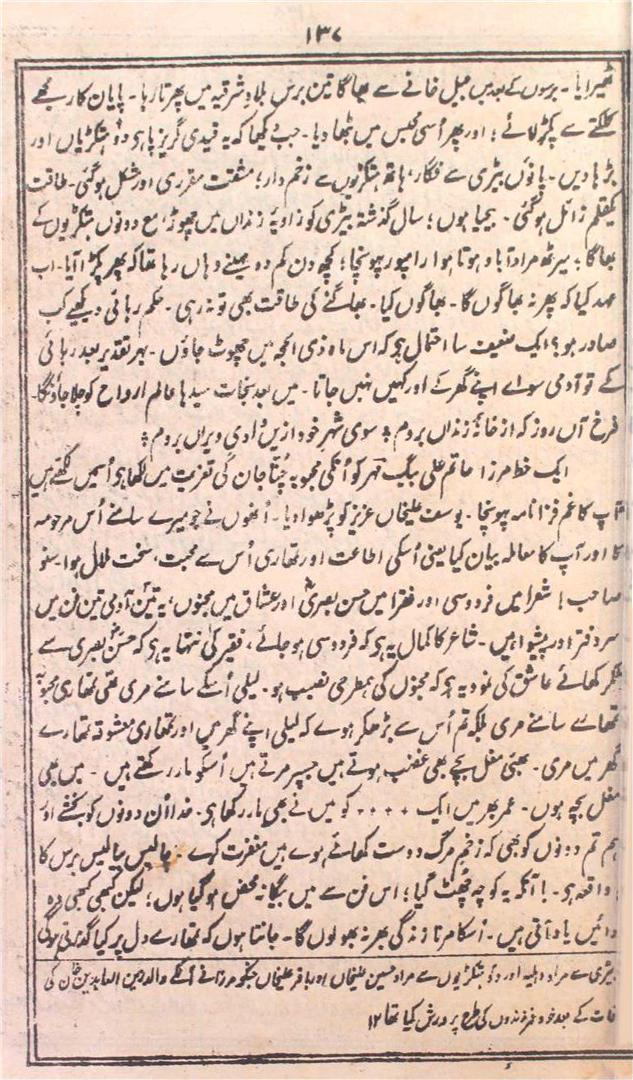 ۱۳۷
ٹھیرایا ۔ برسوں کے بعد میں جیل خانے سے بھاگا تین برس بلاد شرقیہ میں پھرتا رہا ۔ پایان کار مجھے
کلکتے سے پکڑ لائے ؛ اور پھر اُسی محبس میں بٹھا دیا ۔ جب دیکھا کہ یہ قیدی گریز پا ہی دو ہتکڑیاں اور
بڑھا دیں ۔ پاؤں بیڑی سے فگار، ہاتھ ہتکڑیوں سے زخم دار ؛ مشقت مقرری اور مشکل ہو گئی ۔ طاقت
یکقلم زائل ہو گئی ۔ بیحیا ہوں ؛ سال گذشتہ بیڑی کو زاویۂ زنداں میں چھوڑ، مع دونوں ہتکڑیوں کے
بھاگا ؛ میرٹھ مرادآباد ہوتا ہوا رامپور پہونچا ؛ کچھ دن کم دو مہینے وہاں رہا تھا کہ پھر پکڑ آیا ۔ اب
عہد کیا کہ پھر نہ بھاگوں گا ۔ بھاگوں کیا ۔ بھاگنے کی طاقت بھی تو نہ رہی ۔ حکم رہائی دیکھیے کب
صادر ہو ؟ ایک ضعیف سا احتمال ہی کہ اس ماہ ذی الحجہ میں چھوٹ جاؤں ۔ بہر تقدیر بعد رہائی
کے تو آدمی سوائے اپنے گھر کے اور کہیں نہیں جاتا ۔ میں بعد نجات سیدھا عالم ارواح کو چلا جاؤنگا ۔
فرخ آں روز کہ از خانۂ زنداں بروم ؛ سوی شہر خود ازیں وادی ویراں بروم ؛
ایک خط مرزا حاتم علی بیگ مہر کو اُنکی محبوبہ چُنّا جان کی تعزیت میں لکھا ہی اُسمیں لکھتے ہیں
آپ کا غم فزا نامہ پہونچا ۔ یوسف علیخاں عزیز کو پڑھوا دیا ۔ اُنھوں نے جو میرے سامنے اُس مرحومہ
کا اور آپ کا معاملہ بیان کیا یعنی اُسکی اطاعت اور تمھاری اُس سے محبت، سخت ملال ہوا ۔ سنو
صاحب ! شعرا میں فردوسی اور فقرا میں حسن بصریؒ اور عشاق میں مجنوں، یہ تین آدمی تین فن میں
سر دفتر اور پیشوا ہیں ۔ شاعر کا کمال یہ ہی کہ فردوسی ہو جائے، فقیر کی انتہا یہ ہی کہ حسن بصری سے
ٹکر کھائے عاشق کی نمود یہ ہی کہ مجنوں کی ہمطرحی نصیب ہو ۔ لیلی اُسکے سامنے مری تھی تمھاری محبوبہ
تمھارے سامنے مری بلکہ تم اُس سے بڑھکر ہوے کہ لیلی اپنے گھر میں اور تمھاری معشوقہ تمھارے
گھر میں مری ۔ بھئی مغل بچے بھی غضب ہوتے ہیں جسپر مرتے ہیں اُسکو مار رکھتے ہیں ۔ میں بھی
مغل بچہ ہوں ۔ عمر بھر میں ایک ++++ کو میں نے بھی مار رکھا ہی ۔ خدا ان دونوں کو بخشے اور
ہم تم دونوں کو بھی کہ زخم مرگ دوست کھائے ہوے ہیں مغفرت کرے ۔ چالیس بیالیس برس کا
واقعہ ہی ۔ با آنکہ یہ کوچہ چُھٹ گیا ؛ اس فن سے میں بیگانۂ محض ہو گیا ہوں ؛ لیکن کبھی کبھی وہ
ادائیں یاد آتی ہیں ۔ اُسکا مرنا زندگی بھر نہ بھولوں گا ۔ جانتا ہوں کہ تمھارے دل پر کیا گذرتی ہو گی
بیڑی سے مراد حلیلہ اور دو ہتکڑیوں سے مراد حسین علیخاں اور باقر علیخاں جنکو مرزا نے اُنکے والد زین العابدین خان کی
وفات کے بعد خود فرزندوں کی طرح پرورش کیا تھا ۱۲